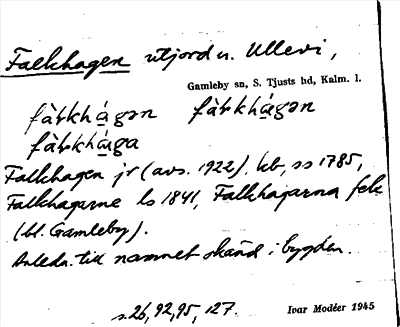 Falkhagen utjord u. Ullevi,
Gamleby sn, S. Tjusts hd, Kalm. l.
fàɫkhá̱gən fàɫkhá̱gən
fàɫkhá̱ga
Falkhagen jr (avs. 1922). kb, ss 1785,
Falkhagarne ls 1841, Falkhagarna fek
(bl. Gamleby).
Anledn. till namnet okänd i bygden.
s. 26, 92, 95, 127.
Ivar Modéer 1945